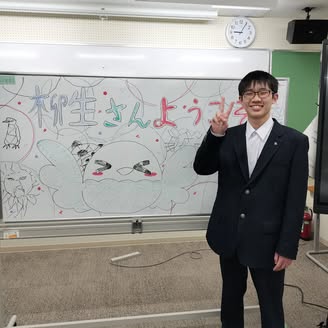 柳生さんようこそ